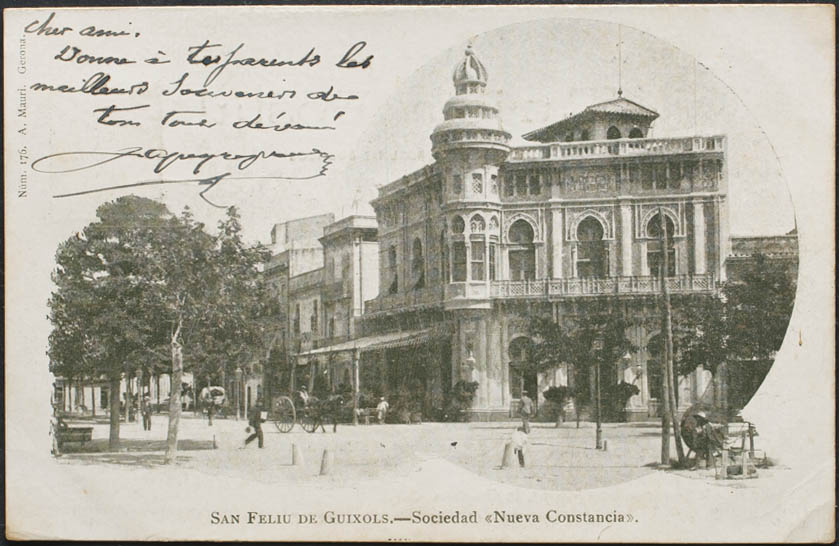 cher ami.
Donne à tes parents les
meilleurs Souvenirs de
ton tout dévoué
Núm. 176. A. Mauri. Gerona.
SAN FELIU DE GUIXOLS.—Sociedad «Nueva Constancia».